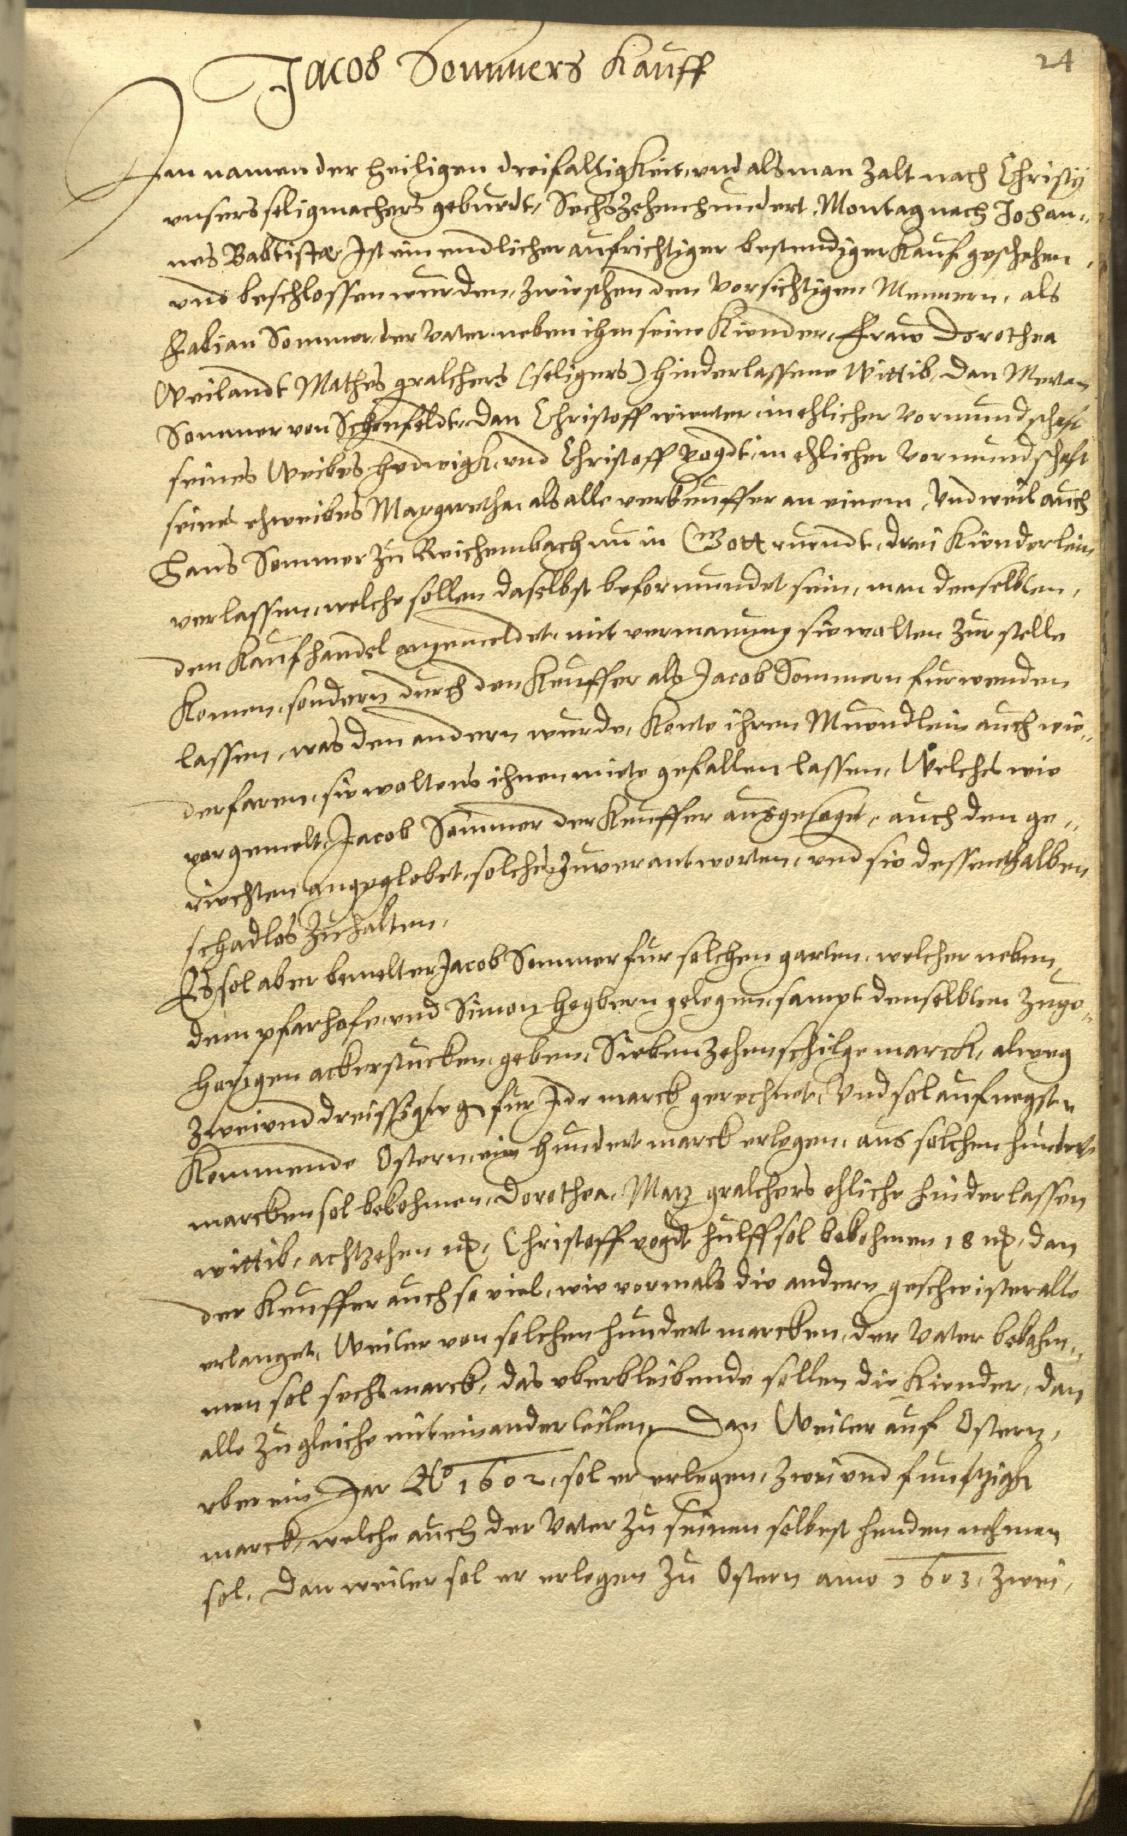 24
Jacob Sommers Kauff
Im namen der heiligen dreifaltigkeit, und als man zalt nach Christy
unsers seligmachers geburdt, Sechszehenhundert, Montag nach Johan„
nes Babtistæ Ist ein endlicher aufrichtiger bestendiger Kauf geschehen
und beschlossen wurden, zwieschen den vorsichtigen Mennern, als
Fabian Sommer, der Vater neben ihm seine Kiender, Fraw Dorothea
Weilandt Mathes gralchers (seligers) hinderlassene Wittib, dan Merten
Sommer von Schenfeldt, dan Christoff winter in ehlicher vormundschaft
seines Weibes Hedwigk, und Christoff vogdt, in ehlicher vormundschaft
seines ehweibes Margaretha, als alle verkeuffer an einem, Und weil auch
Hans Sommer zu Reichembach nu in Gott ruendt, drei Kienderlein
verlassen, welche sollen daselbst beformundet sein, man denselbten,
den Kaufhandel angemeldet, mit vermanung sie wolten zur stelle
Komen, sondern durch den Keuffer als Jacob Sommern furwenden
lassen, was den andern wurde, Konte ihren Muendlein auch wie„
derfaren, sie woltens ihnen miete gefallen lassen, Welches wie
vorgemelt, Jacob Sommer der Keuffer ausgesaget, auch den ge„
riechten angeglobet, solches zuverantworten, und sie dessenthalben
schadlos zuhalten.
Es sol aber bemelter Jacob Sommer fur solchen garten, welcher neben
dem pfarhofe, und Simon Hegbern gelegen, sampt denselbten zuge„
herigen ackerstucken, geben, Siebenzehenschilge marck, alweg
zweiunddreissig g fur Jde marck gerechnet, Und sol auf negst
Kommende Ostern, ein hundert marck erlegen, aus solchen hundert
marcken sol bekohmen, Dorothea, Matz gralchers ehliche hinderlassen
wittib, achtzehen m, Christoff vogdt hulff sol bekohmen 18 m, dan
der Keuffer auch so viel, wie vormals die andern geschwister alle
erlanget, Weiter von solchen hundert marcken, der Vater bekohm„
men sol sechs marck, das uberbleibende sollen die Kiender, dan
alle zu gleiche miteinander teilen, Dan Weiter auf Ostern,
uber ein Jar Ao 1602, sol er erlegen, zwei und funftzigk
marck, welche auch der Vater zu seinen selbest henden nehmen
sol, Dan weiter sol er erlegen zu Ostern anno 1603, zwei,